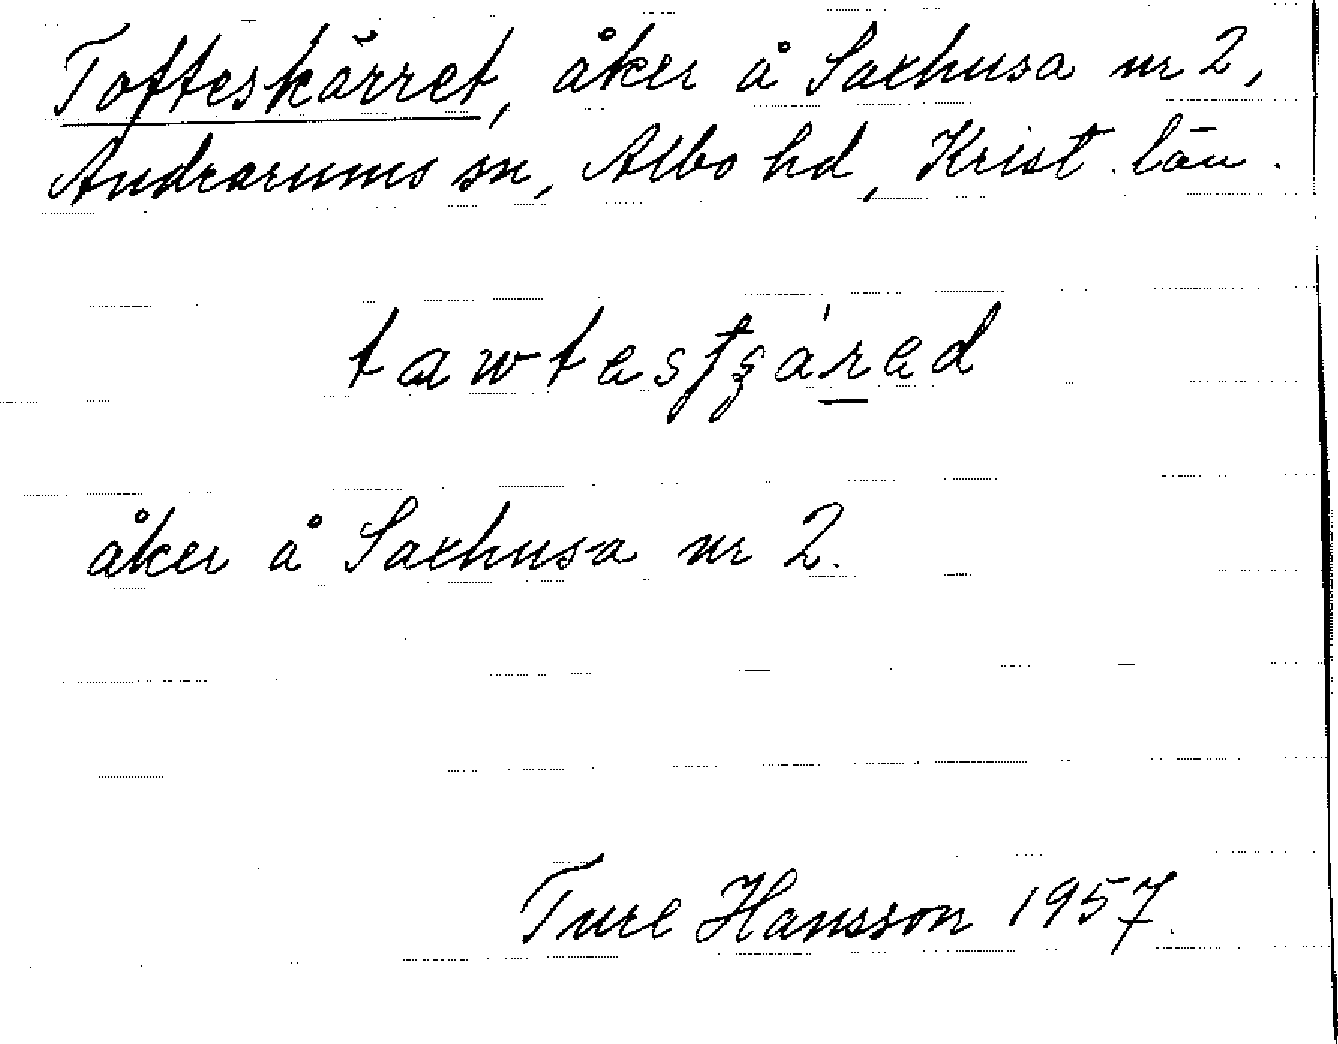 Tofteskärret, åker å Saxhusa nr 2,
Andrarums sn, Albo hd, Krist. län.
åker å Saxhusa nr 2.
Ture Hansson 1957.